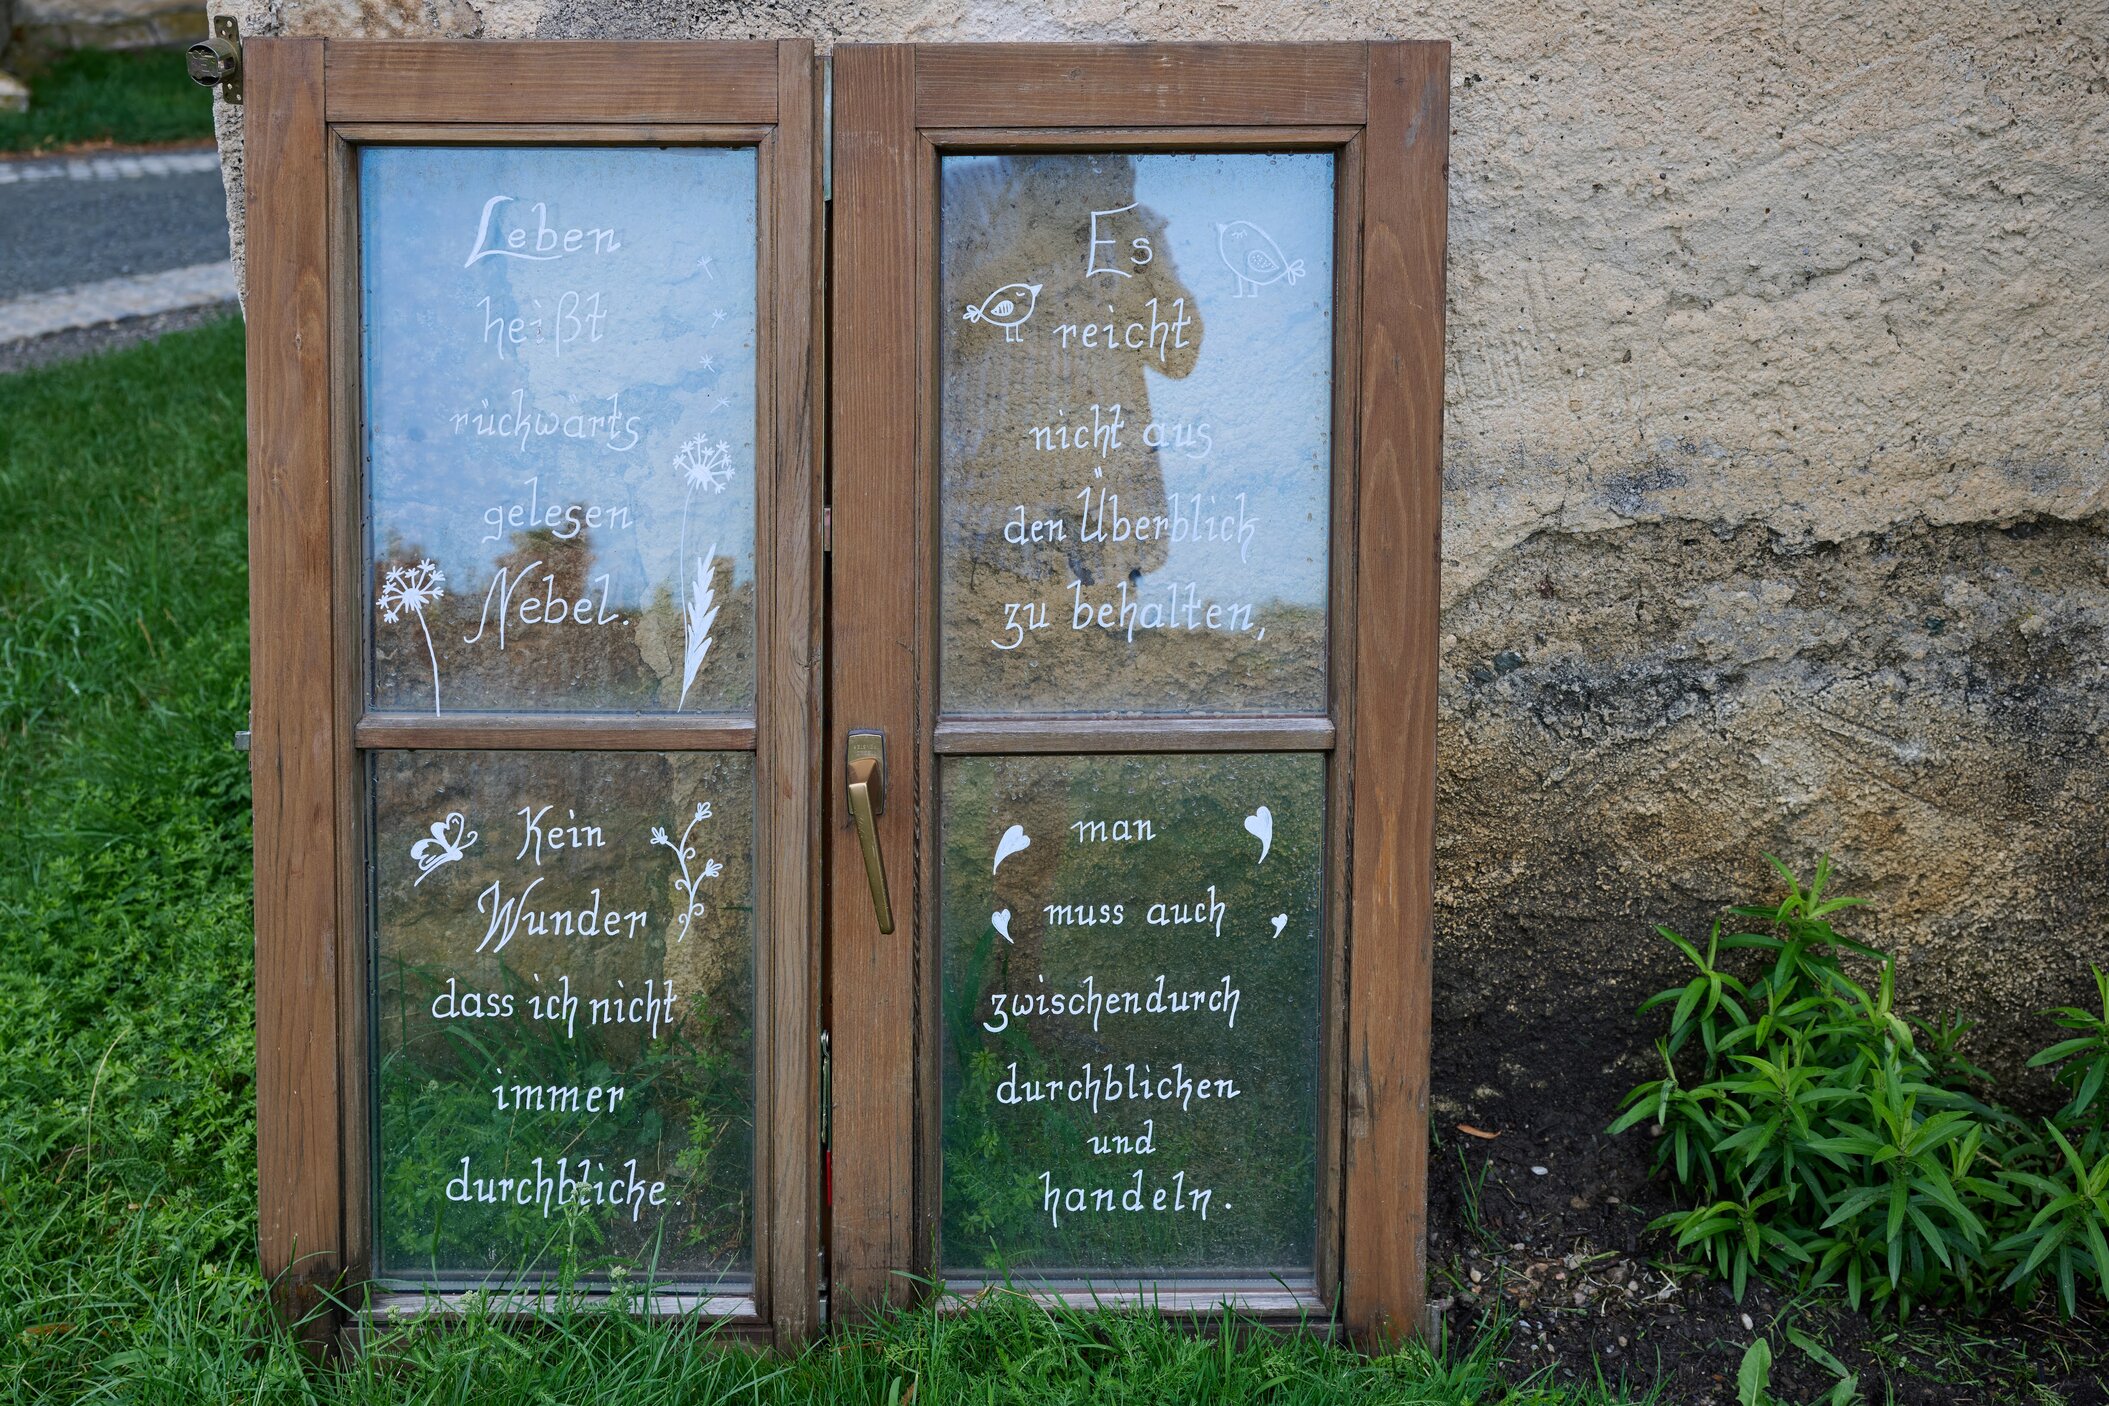 Leben
heißt
rückwärts
gelesen
Nebel.
Kein
Wunder
dass ich nicht
immer
durchblicke.
Es
reicht
nicht aus
den Überblick
zu behalten,
man
muss auch
zwischendurch
durchblicken
und
handeln.